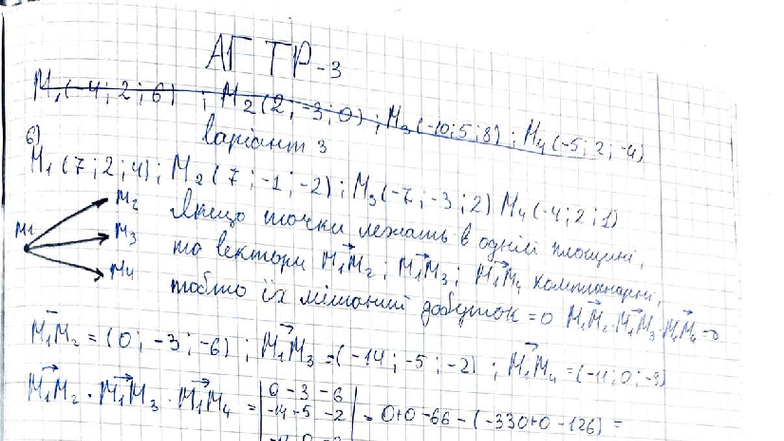 АГ ТР-3
M₁(-4; 2; 6) ; M₂(2; -3; 0) ; M₃(-10; 5; 8) ; M₄(-5; 2; -4)
варіант 3
б)
M₁(7; 2; 4) ; M₂(7; -1; -2) ; M₃(-7; -3; 2) M₄(-4; 2; 1)
M₂
M₁
M₃
M₄
Якщо точки лежать в одній площині,
то вектори M₁M₂ ; M₁M₃ ; M₁M₄ компланарні,
тобто їх мішаний добуток = 0 M₁M₂ · M₁M₃ · M₁M₄ = 0
M₁M₂ = (0; -3; -6) ; M₁M₃ = (-14; -5; -2) ; M₁M₄ = (-11; 0; -3)
M₁M₂ · M₁M₃ · M₁M₄ = | 0 -3 -6 | = 0+0-66-(-330+0-126) =
| -14 -5 -2 |